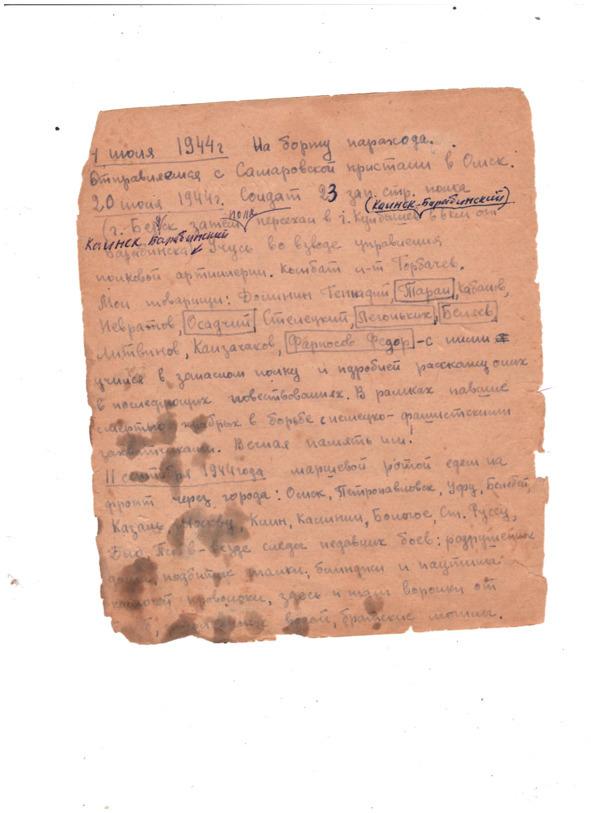 1 июня 1944г На борту парохода.
Отправляемся с Самаровской пристани в Омск.
20 июня 1944г. Солдат 23 зап. стр. полка
(Каинск-Барабинский)
(г. Бердск затем полк переехал в г. Куйбышев в км от
Каинск Барабинский
Барабинска. Учусь во взводе управления
полковой артиллерии. Комбат л-т Горбачев.
Мои товарищи: Фомин Геннадий, Таран, Кабашев,
Невратов, Осадчий Стелецкий, Легоньких, Беляев,
Литвинов, Казачков, Фарносов Федор - с ними
учился в запасном полку и подробней расскажу о них
в последующих повествованиях. В рамках павшие
смертью храбрых в борьбе с немецко-фашистскими
захватчиками. Вечная память им.
11 сентября 1944 года маршевой ротой едем на
фронт через города: Омск, Петропавловск, Уфу, Белебей,
Казань, Москву, Клин, Калинин, Бологое, Ст. Руссу,
Псков - везде следы недавних боев: разрушенные
дома, подбитые танки, блиндажи и паутина
колючей проволоки, здесь и там воронки от
водой, братские могилы.